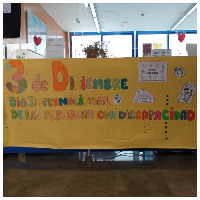 3 de Diciembre
Día Internacional
de las personas con discapacidad